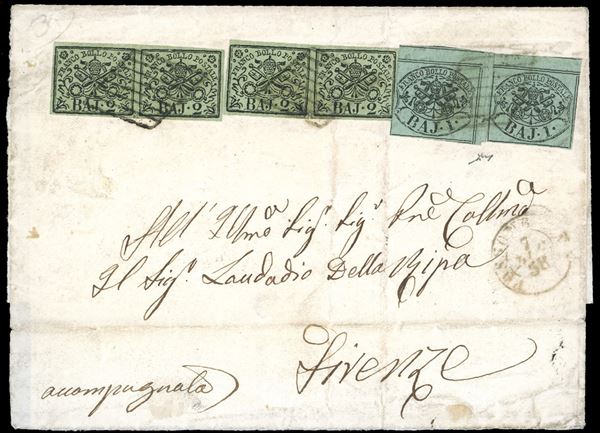 FRANCO BOLLO POSTALE FRANCO BOLLO POSTALE FRANCO BOLLO POSTALE FRANCO BOLLO POSTALE FRANCO BOLLO POSTALE FRANCO BOLLO POSTALE
BAJ. 2 BAJ. 2 BAJ. 2 BAJ. 2 BAJ. 1. BAJ. 1.
All' Illmo Sigr. Sigr. Prne Collmo
Il Sigr. Laudadio Della Ripa
7
58
Firenze
accompagnata